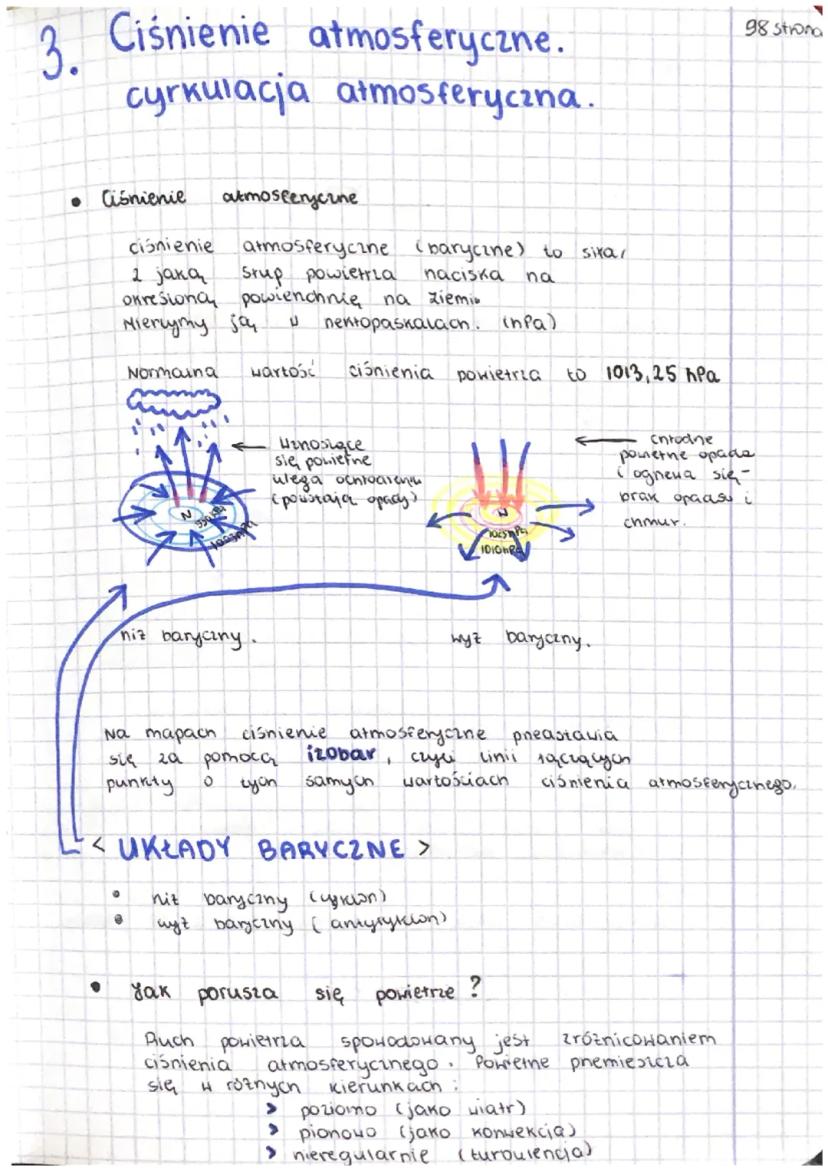 98 strona
3. Ciśnienie atmosferyczne.
cyrkulacja atmosferyczna.
• Ciśnienie atmosferyczne
ciśnienie atmosferyczne (baryczne) to siła,
z jaką słup powietrza naciska na
określoną powierzchnię na ziemi.
Mierzymy ją w hektopaskalach. (hPa)
Normalna wartość ciśnienia powietrza to 1013,25 hPa
Wznoszące
się powietrze
ulega ochłodzeniu
(powstają opady)
chłodne
powietrze opada
i ogrzewa się -
brak opadów i
chmur.
N
W
1025hPa
1010hPa
niż baryczny.
wyż baryczny.
Na mapach ciśnienie atmosferyczne przedstawia
się za pomocą izobar, czyli linii łączących
punkty o tych samych wartościach ciśnienia atmosferycznego.
< UKŁADY BARYCZNE >
• niż baryczny (cyklon)
• wyż baryczny (antycyklon)
• Jak porusza się powietrze?
Ruch powietrza spowodowany jest zróżnicowaniem
ciśnienia atmosferycznego. Powietrze przemieszcza
się w różnych kierunkach:
> poziomo (jako wiatr)
> pionowo (jako konwekcja)
> nieregularnie (turbulencja)